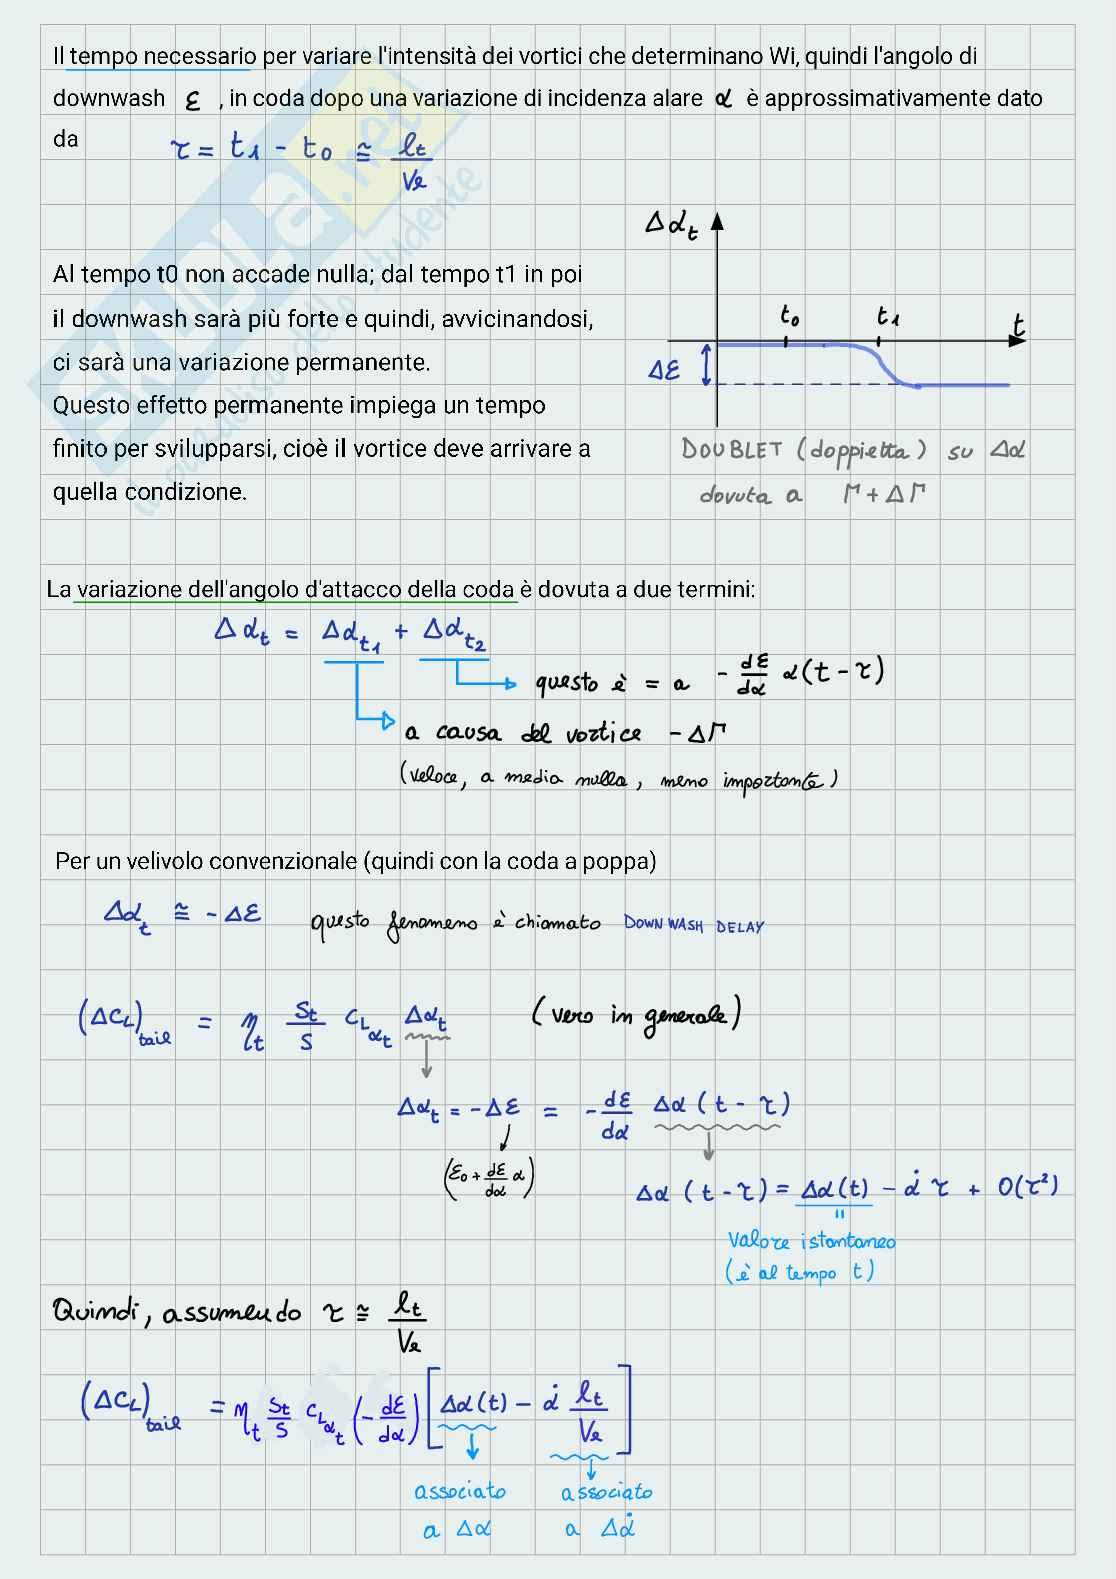 Il tempo necessario per variare l'intensità dei vortici che determinano Wi, quindi l'angolo di
downwash ε , in coda dopo una variazione di incidenza alare α è approssimativamente dato
da τ = t1 - t0 ≅ lt/Ve
Δαt
Al tempo t0 non accade nulla; dal tempo t1 in poi
il downwash sarà più forte e quindi, avvicinandosi,
t0 t1 t
ci sarà una variazione permanente.
Δε
Questo effetto permanente impiega un tempo
finito per svilupparsi, cioè il vortice deve arrivare a
quella condizione.
DOUBLET (doppietta) su Δα
dovuta a Γ + ΔΓ
La variazione dell'angolo d'attacco della coda è dovuta a due termini:
Δαt = Δαt1 + Δαt2
questo è = a - dε/dα α(t - τ)
a causa del vortice -ΔΓ
(veloce, a media nulla, meno importante)
Per un velivolo convenzionale (quindi con la coda a poppa)
Δαt ≅ -Δε questo fenomeno è chiamato DOWNWASH DELAY
(ΔCL)tail = ηt St/S CLαt Δαt (vero in generale)
Δαt = -Δε = - dε/dα Δα(t - τ)
(ε0 + dε/dα α)
Δα(t - τ) = Δα(t) - α̇ τ + O(τ²)
"
valore istantaneo
(è al tempo t)
Quindi, assumendo τ ≅ lt/Ve
(ΔCL)tail = ηt St/S CLαt (- dε/dα) [Δα(t) - α̇ lt/Ve]
associato associato
a Δα a Δα̇
SKUOLA.net
il paradiso dello studente